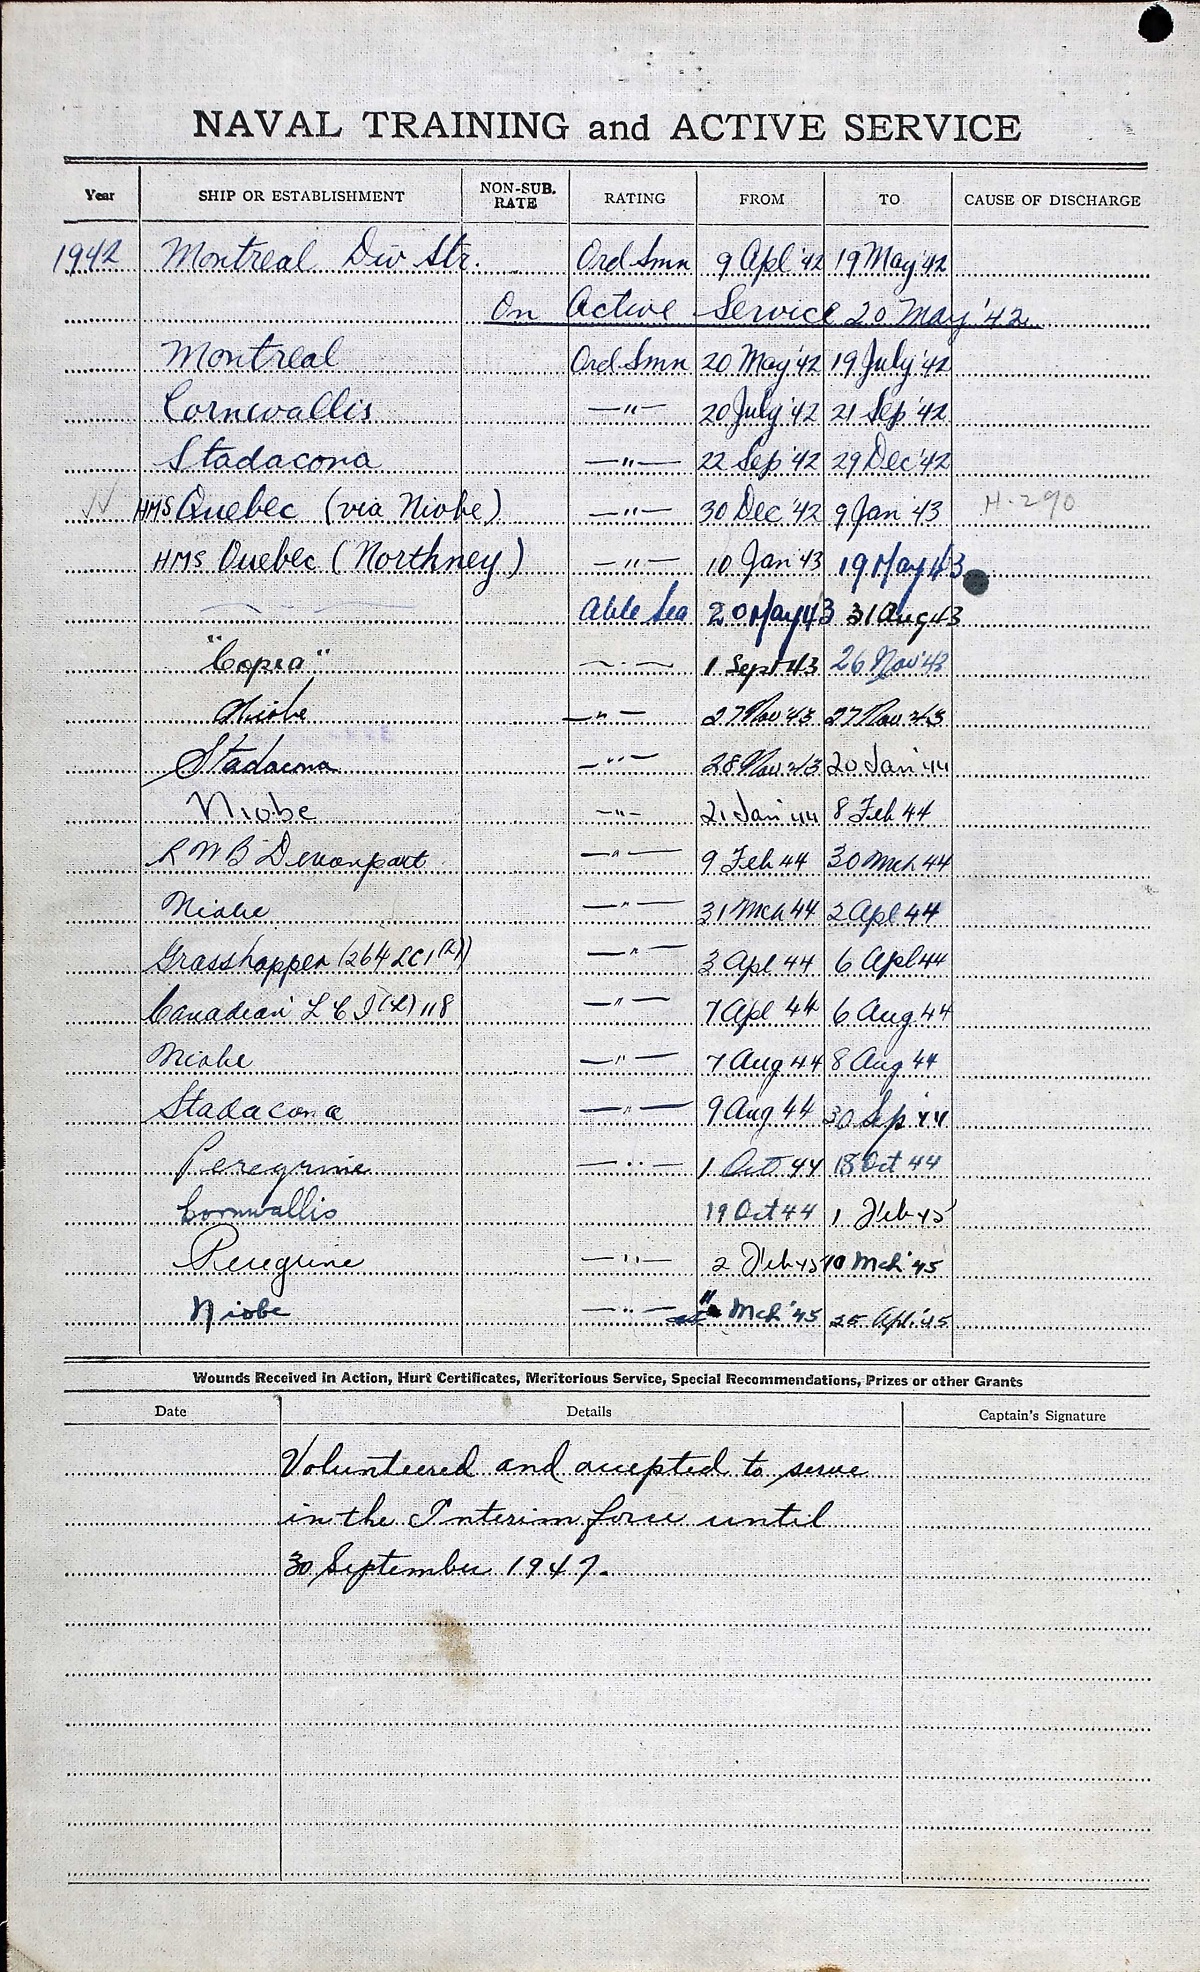 NAVAL TRAINING and ACTIVE SERVICE
Year SHIP OR ESTABLISHMENT NON-SUB. RATE RATING FROM TO CAUSE OF DISCHARGE
1942 Montreal Div Str. Ord Smn 9 Apl '42 19 May '42
On Active Service 20 May '42
Montreal Ord. Smn 20 May '42 19 July '42
Cornwallis —"— 20 July '42 21 Sep '42
Stadacona —"— 22 Sep '42 29 Dec '42
HMS Quebec (via Niobe) —"— 30 Dec '42 9 Jan '43 H-290
HMS Quebec (Northney) —"— 10 Jan '43 19 May 43
Able Sea 20 May 43 31 Aug 43
"Copra" —"— 1 Sept 43 26 Nov '43
Niobe —"— 27 Nov '43 27 Nov 43
Stadacona —"— 28 Nov 43 20 Jan 44
Niobe —"— 21 Jan 44 8 Feb 44
R N B Devonport —"— 9 Feb 44 30 Mch 44
Niobe —"— 31 Mch 44 2 Apl 44
Grasshopper (264 LCI (L)) —"— 3 Apl 44 6 Apl 44
Canadian L C I (L) 118 —"— 7 Apl 44 6 Aug 44
Niobe —"— 7 Aug 44 8 Aug 44
Stadacona —"— 9 Aug 44 30 Sep '44
Peregrine —"— 1 Oct 44 18 Oct 44
Cornwallis 19 Oct 44 1 Feb 45
Peregrine —"— 2 Feb 45 10 Mch '45
Niobe —"— Mch '45 25 Apl. '45
Wounds Received in Action, Hurt Certificates, Meritorious Service, Special Recommendations, Prizes or other Grants
Date Details Captain's Signature
Volunteered and accepted to serve
in the Interim force until
30 September 1947.